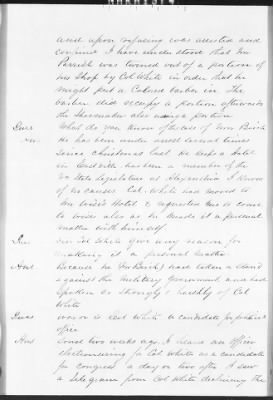 and upon refusing was arrested and
confined I have understood that Mr
Parrish was turned out of a portion of
his Shop by Col White in order that he
might put a Colored barber in. The
barber did occupy a portion afterwards
the Shoemaker also using a portion
Ques What do you Know of the case of Wm
He has been under arrest several times
since Christmas last. He keeps a Hotel
in has been a member of the
State Legislature at Alexandria I Know
of no causes Col. White has moved to
Mr Hotel & requested me to come
to also as he made it a personal
matter with himself.
Ques Did Col White give any reason for
making it a personal matter.
Ans Because he had taken a stand
against the military government and had
spoken so strongly & harshly of Col
White
Ques was or is Col White a candidate for
office
Ans Some two weeks ago I heard an officer
electioneering for Col White as a candidate
for congress a day or two after I saw
a telegram from Col White declining the